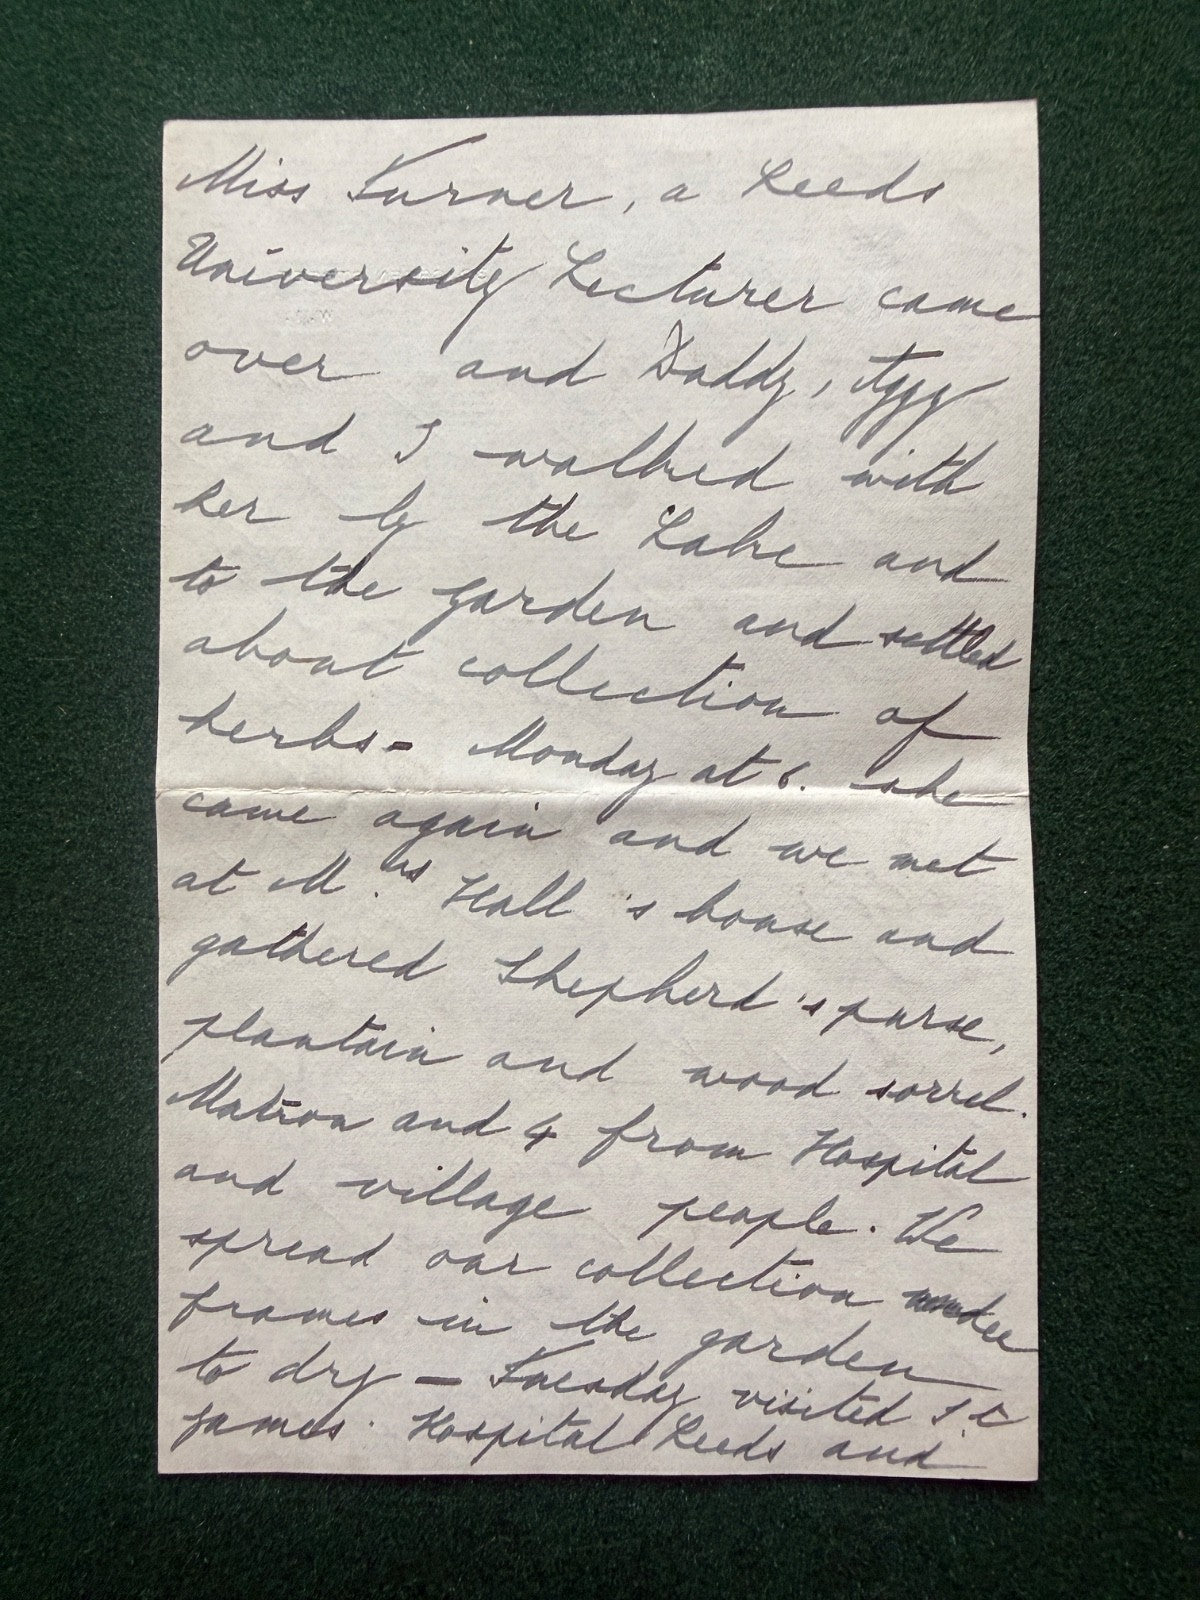 Miss Turner, a Leeds
University Lecturer came
over and Daddy,
and I walked with
her by the Lake and
to the garden and settled
about collection of
herbs - Monday at 6. she
came again and we met
at Mrs Hall's house and
gathered Shepherd's purse,
plantain and wood sorrel.
Matron and 4 from Hospital
and village people. We
spread our collection under
frames in the garden
to dry - Tuesday visited St
James. Hospital Leeds and